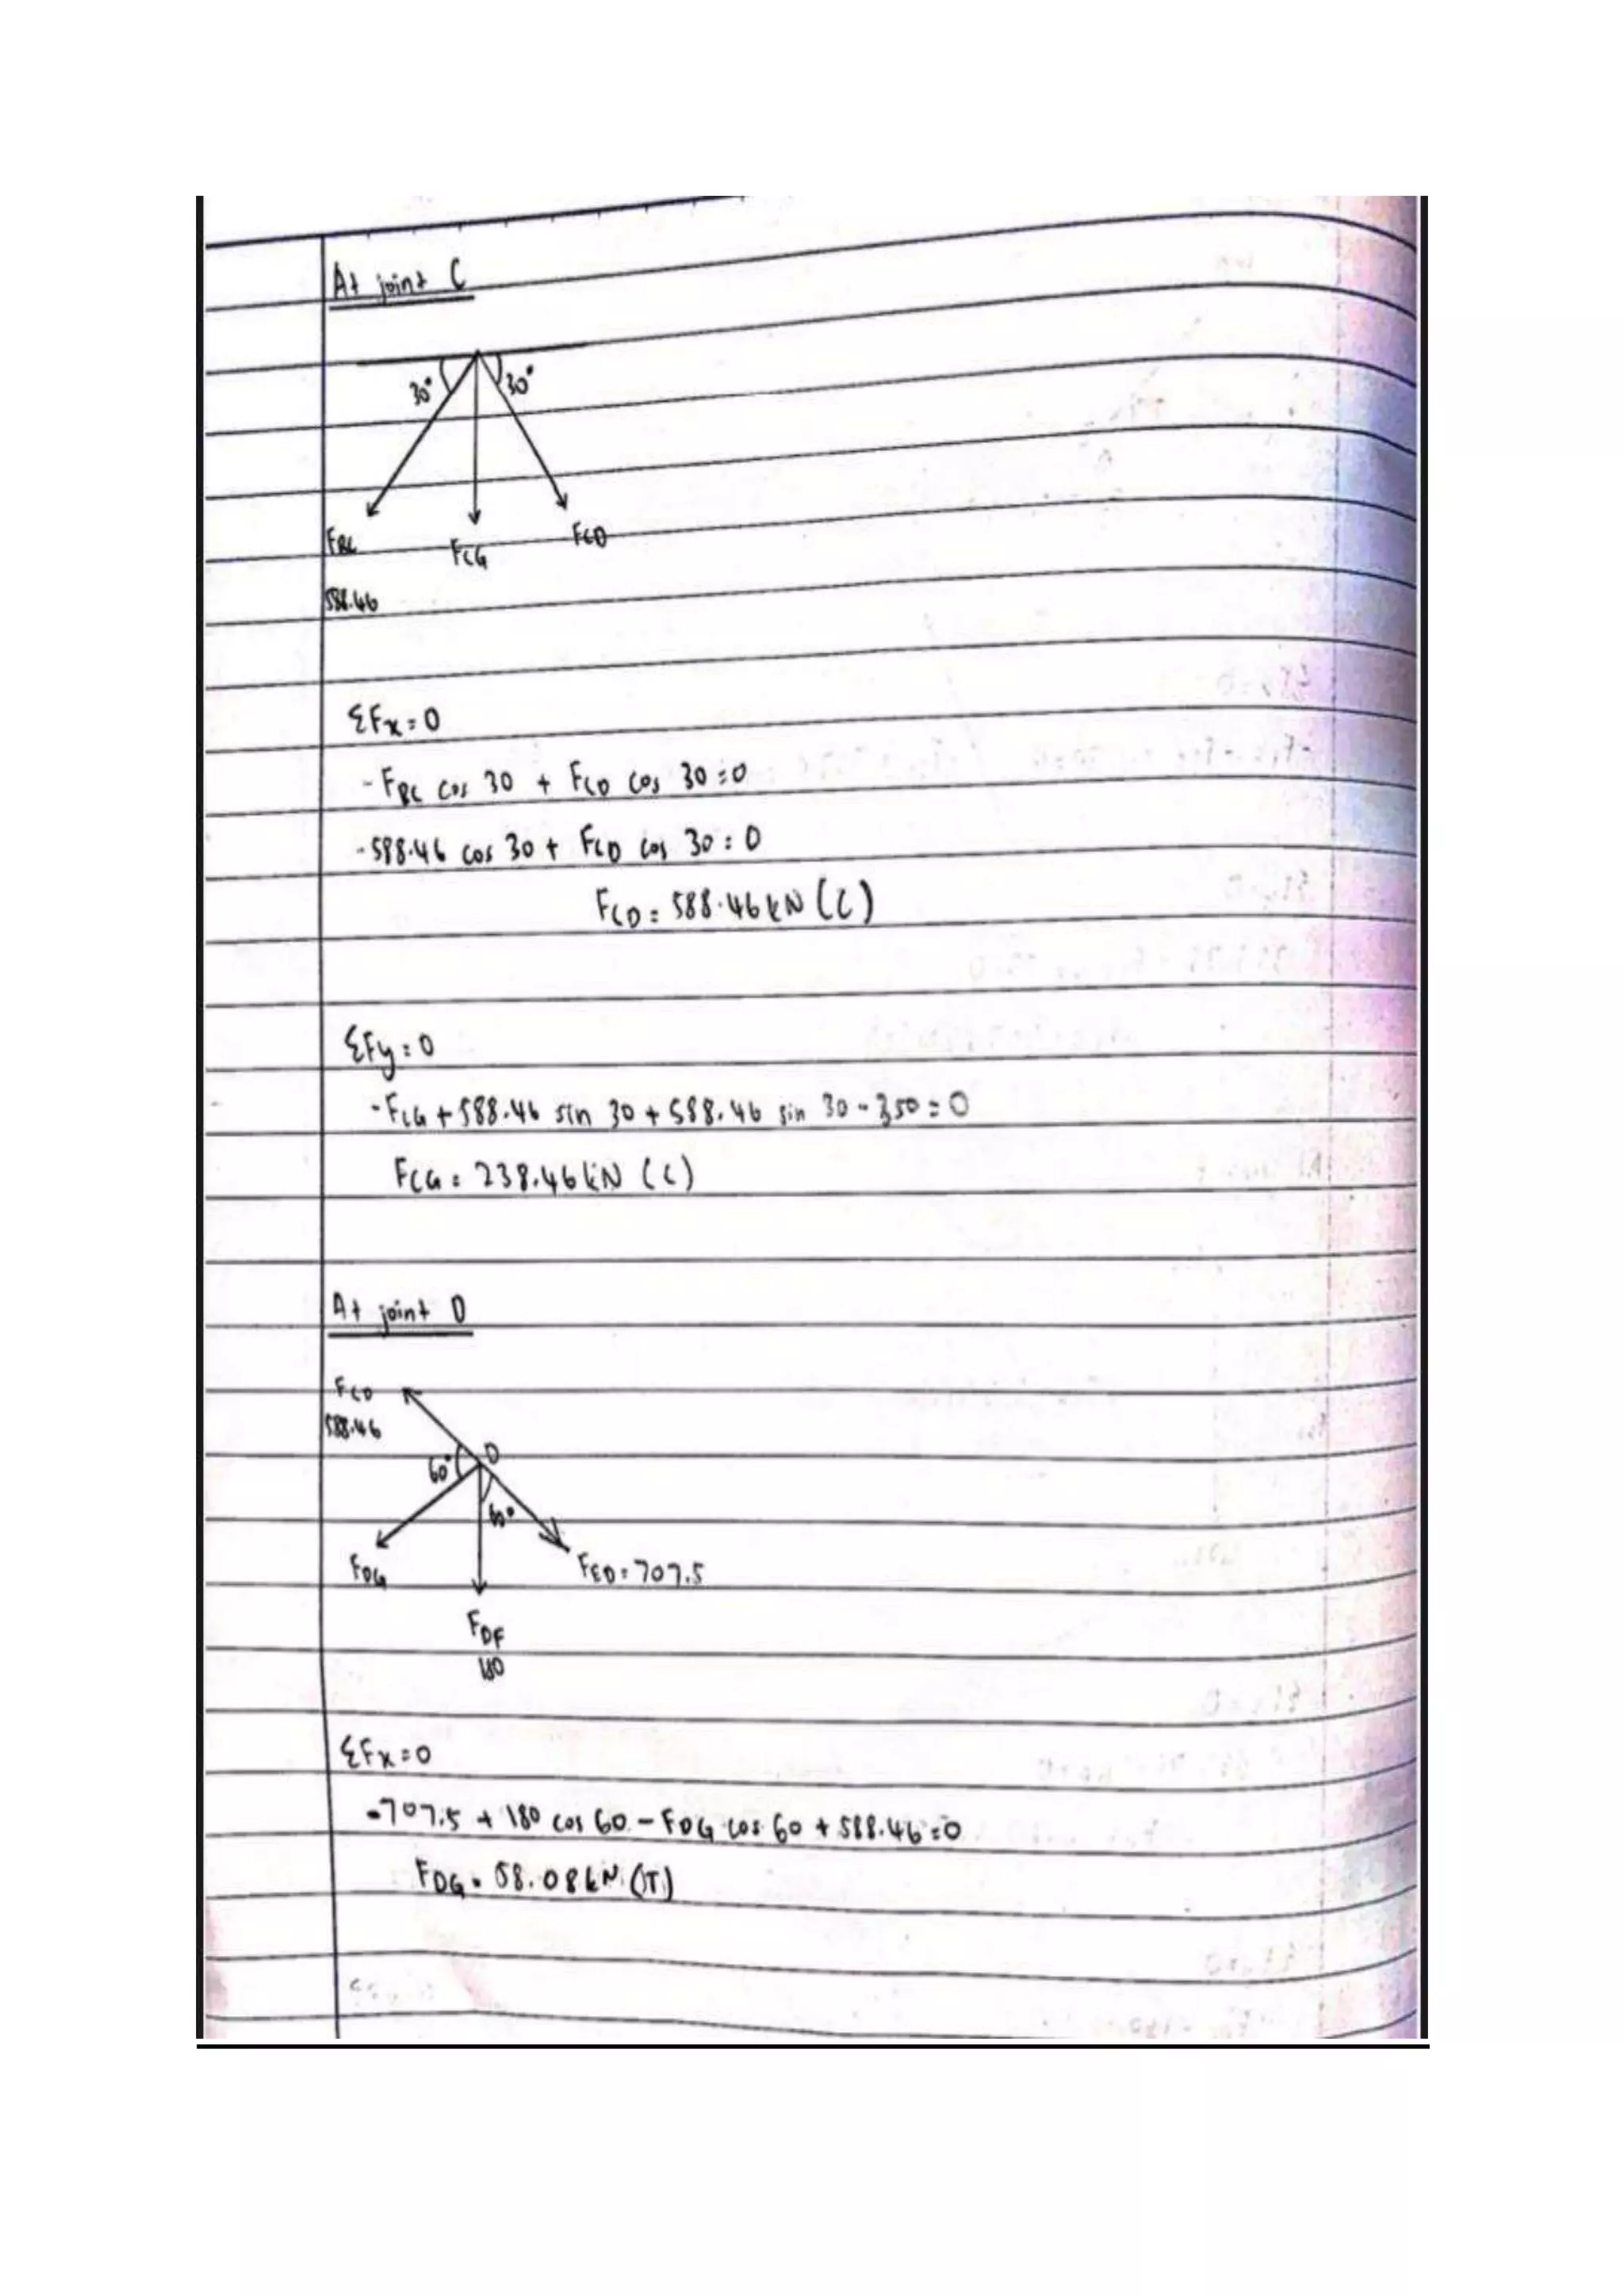 At joint C
30° 30°
FBC FCG FCD
588.46
ΣFx=0
- FBC cos 30 + FCD cos 30 = 0
-588.46 cos 30 + FCD cos 30 = 0
FCD = 588.46 kN (C)
ΣFy = 0
-FCG + 588.46 sin 30 + 588.46 sin 30 - 350 = 0
FCG = 238.46 kN (C)
At joint D
FCD
588.46
D
60°
60°
FDG
FED = 707.5
FDF
180
ΣFx = 0
-707.5 + 180 cos 60 - FDG cos 60 + 588.46 = 0
FDG = 58.08 kN (T)